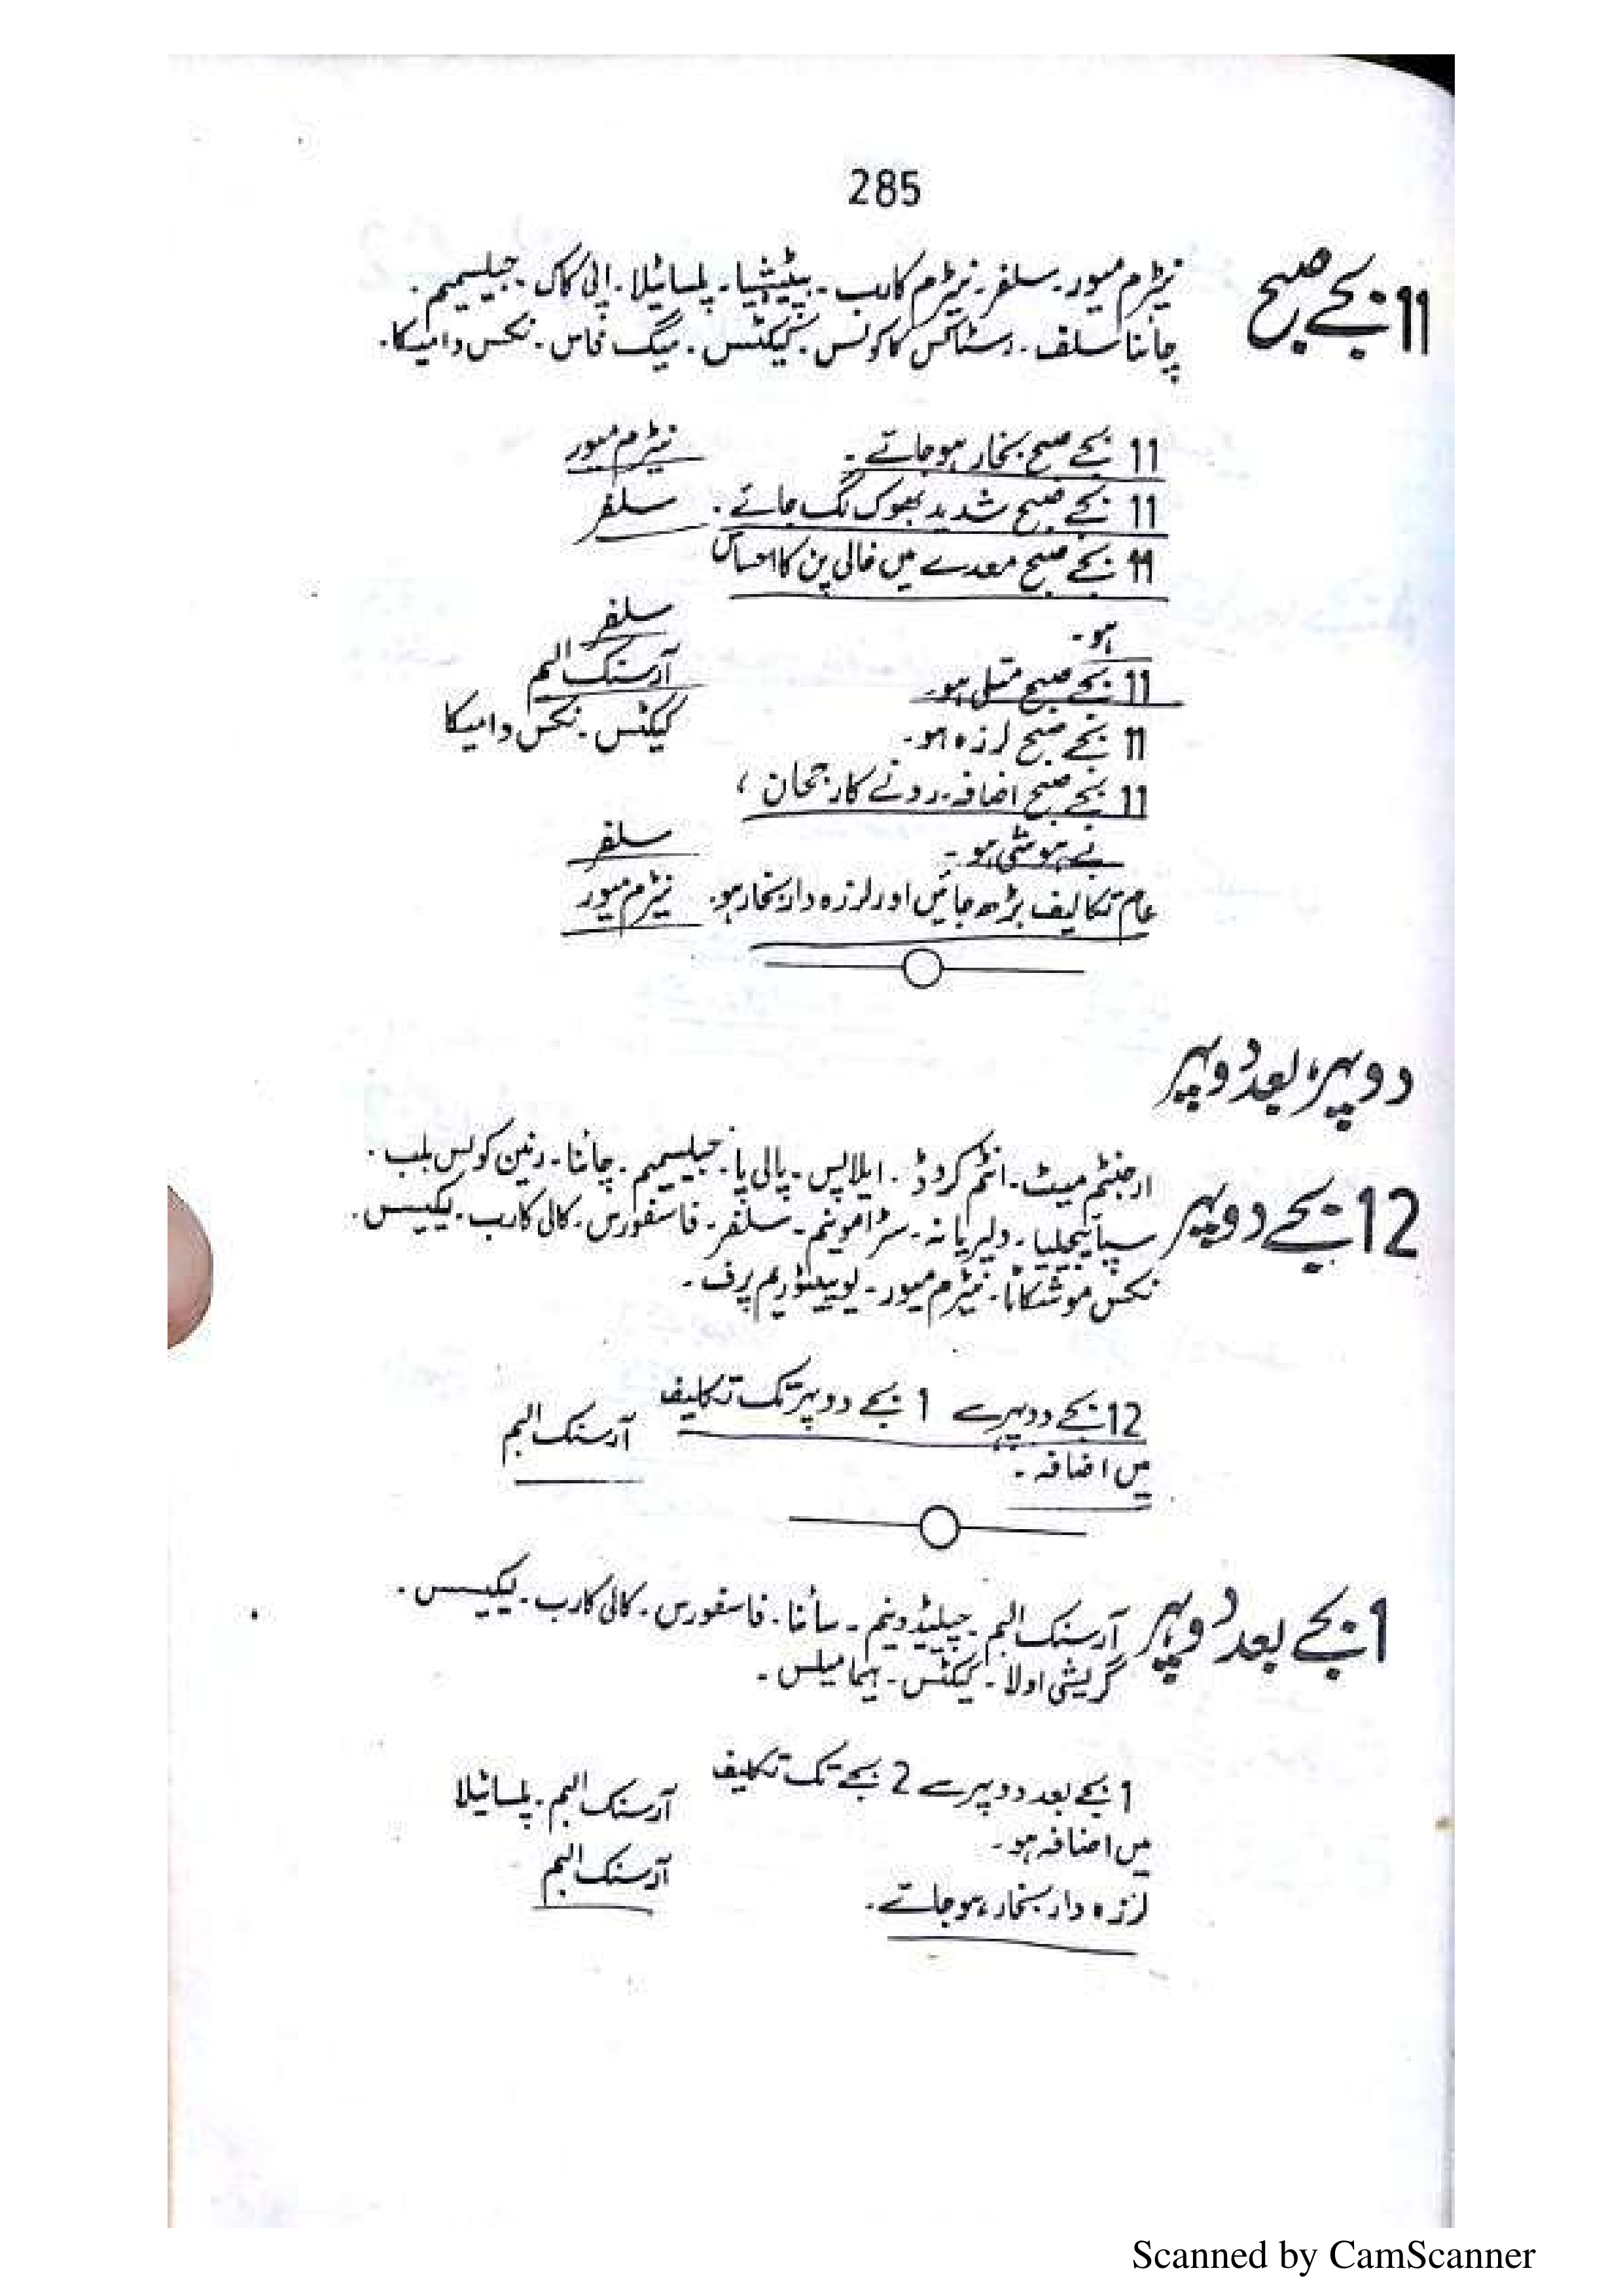 285
11 بجے صبح
نیٹرم میور۔ سلفر۔ نیٹرم کارب۔ بیپٹیشیا۔ پلساٹیلا۔ اپی کاک۔ جیلسیمیم۔
چائنا سلف۔ رسٹاکس کاکولس۔ کیکٹس۔ میگ فاس۔ نکس وامیکا۔
11 بجے صبح بخار ہو جائے۔ نیٹرم میور
11 بجے صبح شدید بھوک لگ جائے۔ سلفر
11 بجے صبح معدے میں خالی پن کا احساس
ہو۔ سلفر
11 بجے صبح متلی ہو۔ آرسنک البم
11 بجے صبح لرزہ ہو۔ کیکٹس۔ نکس وامیکا
11 بجے صبح اضافہ۔ رونے کا رجحان،
بے ہوشی ہو۔ سلفر
عام تکالیف بڑھ جائیں اور لرزہ دار بخار ہو۔ نیٹرم میور
دوپہر، بعد دوپہر
12 بجے دوپہر
ارجنٹم میٹ۔ انٹم کروڈ۔ ایلاپس۔ پالی پا۔ جیلسیمیم۔ چائنا۔ رنین کولس بلب۔
سپائیجیلیا۔ ولیریانہ۔ سٹرامونیم۔ سلفر۔ فاسفورس۔ کالی کارب۔ لیکیسس۔
نکس موشکاٹا۔ نیٹرم میور۔ یوپیٹوریم پرف۔
12 بجے دوپہر سے 1 بجے دوپہر تک تکلیف
میں اضافہ۔ آرسنک البم
1 بجے بعد دوپہر
آرسنک البم۔ چیلیڈونیم۔ سائنا۔ فاسفورس۔ کالی کارب۔ لیکیسس۔
گریشی اولا۔ کیکٹس۔ ہیمامیلس۔
1 بجے بعد دوپہر سے 2 بجے تک تکلیف
میں اضافہ ہو۔ آرسنک البم۔ پلساٹیلا
لرزہ دار بخار ہو جائے۔ آرسنک البم
Scanned by CamScanner